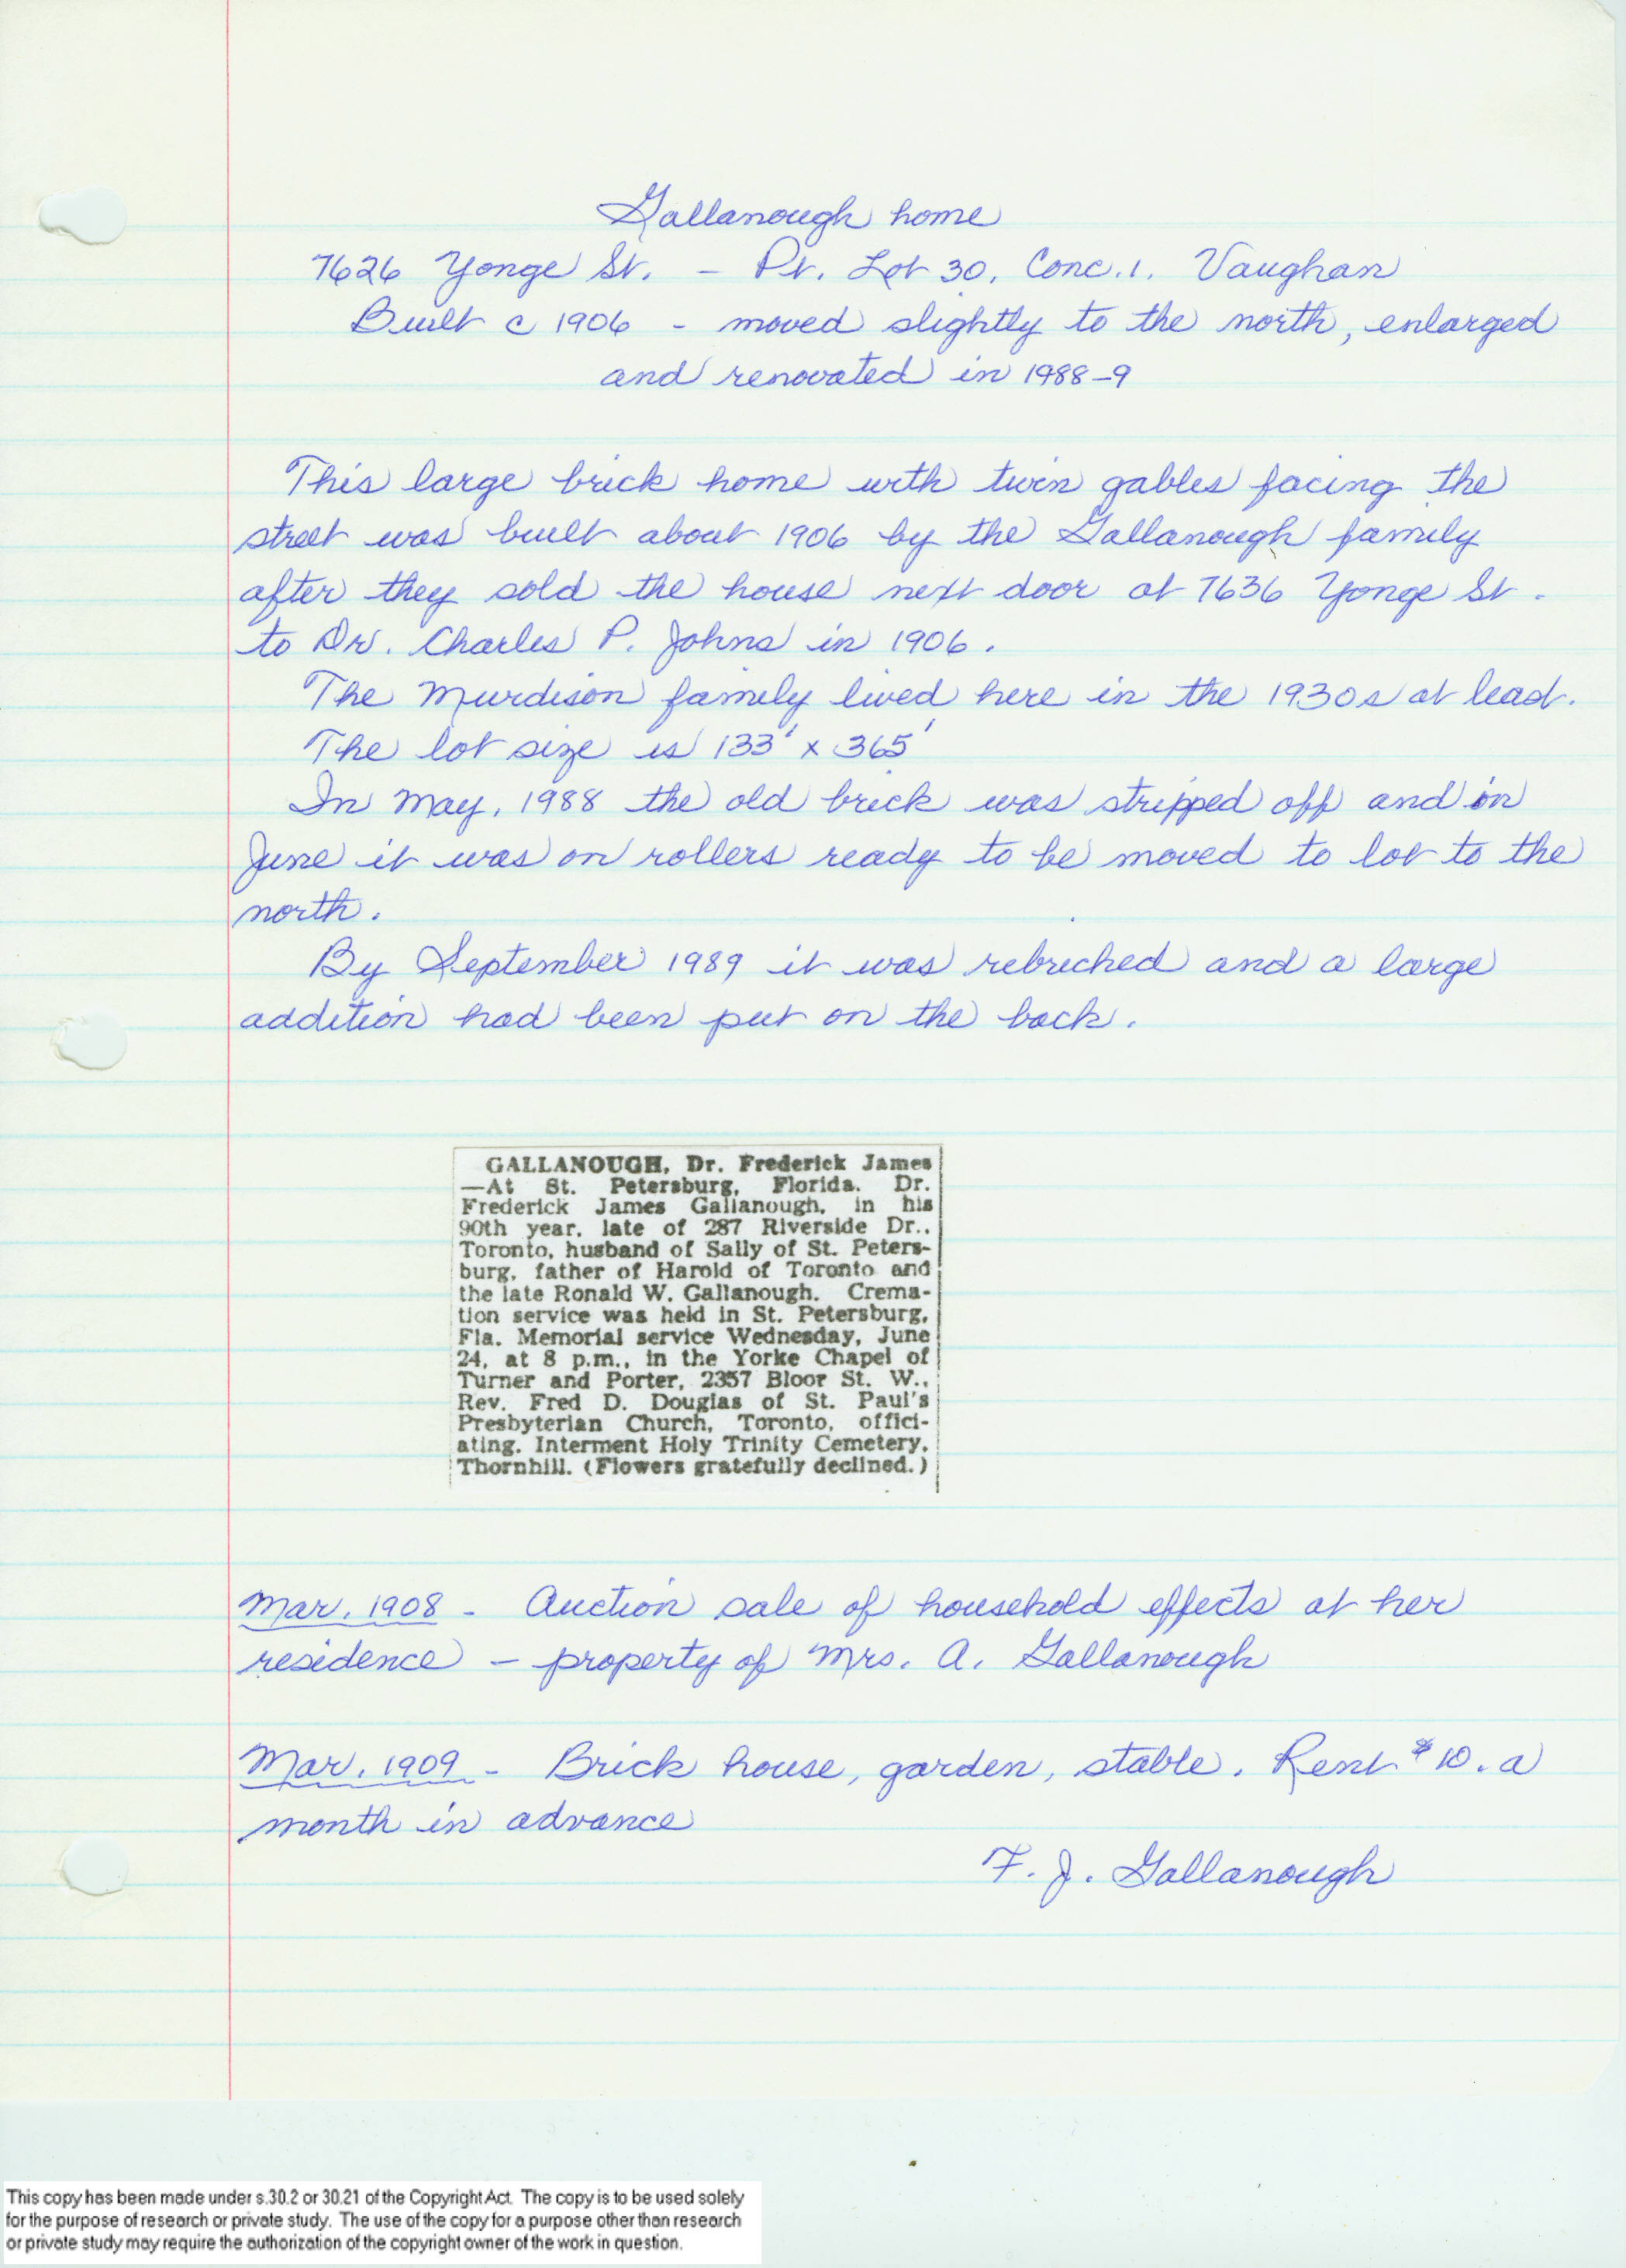 Gallanough home
7626 Yonge St. - Pt. Lot 30, Conc. 1. Vaughan
Built c 1906 - moved slightly to the north, enlarged
and renovated in 1988-9
This large brick home with twin gables facing the
street was built about 1906 by the Gallanough family
after they sold the house next door at 7636 Yonge St.
to Dr. Charles P. Johns in 1906.
The Murdison family lived here in the 1930s at least.
The lot size is 133' x 365'
In May, 1988 the old brick was stripped off and in
June it was on rollers ready to be moved to lot to the
north.
By September 1989 it was rebricked and a large
addition had been put on the back.
GALLANOUGH, Dr. Frederick James
—At St. Petersburg, Florida. Dr.
Frederick James Gallanough, in his
90th year, late of 287 Riverside Dr.,
Toronto, husband of Sally of St. Peters-
burg, father of Harold of Toronto and
the late Ronald W. Gallanough. Crema-
tion service was held in St. Petersburg,
Fla. Memorial service Wednesday, June
24, at 8 p.m., in the Yorke Chapel of
Turner and Porter, 2357 Bloor St. W.,
Rev. Fred D. Douglas of St. Paul's
Presbyterian Church, Toronto, offici-
ating. Interment Holy Trinity Cemetery,
Thornhill. (Flowers gratefully declined.)
Mar. 1908 - Auction sale of household effects at her
residence - property of Mrs. A. Gallanough
Mar. 1909 - Brick house, garden, stable. Rent $10. a
month in advance
F. J. Gallanough
This copy has been made under s.30.2 or 30.21 of the Copyright Act. The copy is to be used solely
for the purpose of research or private study. The use of the copy for a purpose other than research
or private study may require the authorization of the copyright owner of the work in question.